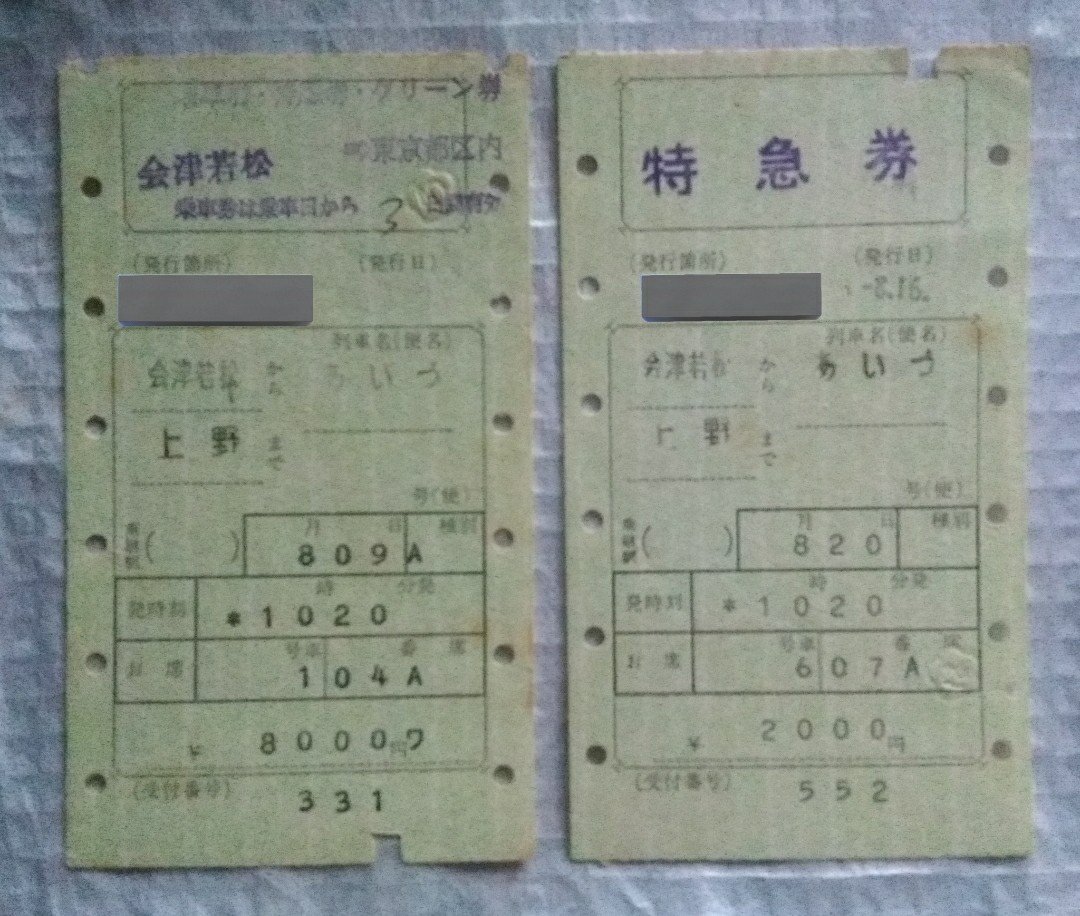 乗車券・特急券・グリーン券
会津若松
東京都区内
乗車券は乗車日から 3 日間有効
(発行箇所) (発行日)
列車名(便名)
会津若松 から あいづ
上野 まで
号(便)
月 日 種別
( ) 809 A
時 分発
発時刻 *1020
号車 番 席
お席 104A
¥ 8000円ワ
(受付番号)
331
特急券
(発行箇所) (発行日)
-8.16.
列車名(便名)
会津若松 から あいづ
上野 まで
号(便)
月 日 種別
( ) 820
時 分発
発時刻 *1020
号車 番 席
お席 607A
¥ 2000円
(受付番号)
552